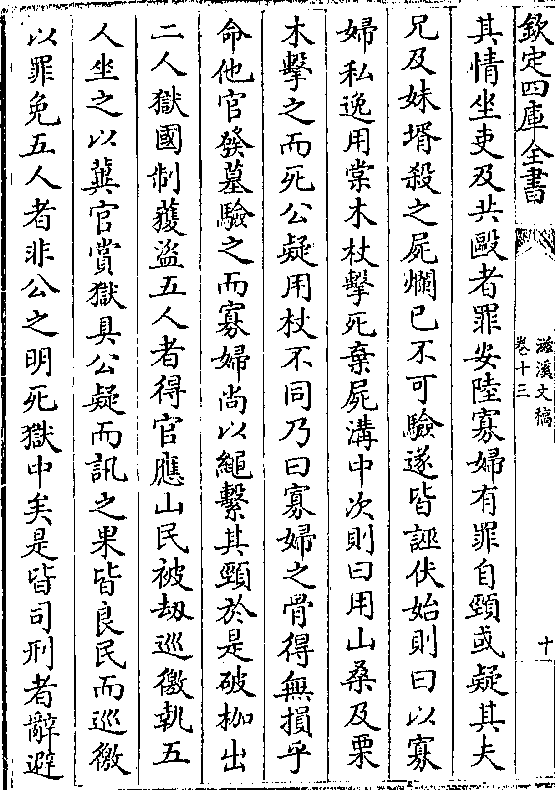 欽定四庫全書
滋溪文稿
卷十三
十
其情坐吏及共毆者罪安陸寡婦有罪自頸或疑其夫
兄及妹壻殺之屍爛已不可驗遂皆誣伏始則曰以寡
婦私逸用棠木杖擊死棄屍溝中次則曰用山桑及栗
木擊之而死公疑用杖不同乃曰寡婦之骨得無損乎
命他官發墓驗之而寡婦尚以繩繫其頸於是破枷出
二人獄國制獲盜五人者得官應山民被刼巡徼執五
人坐之以冀官賞獄具公疑而訊之果皆良民而巡徼
以罪免五人者非公之明死獄中矣是皆司刑者辭避